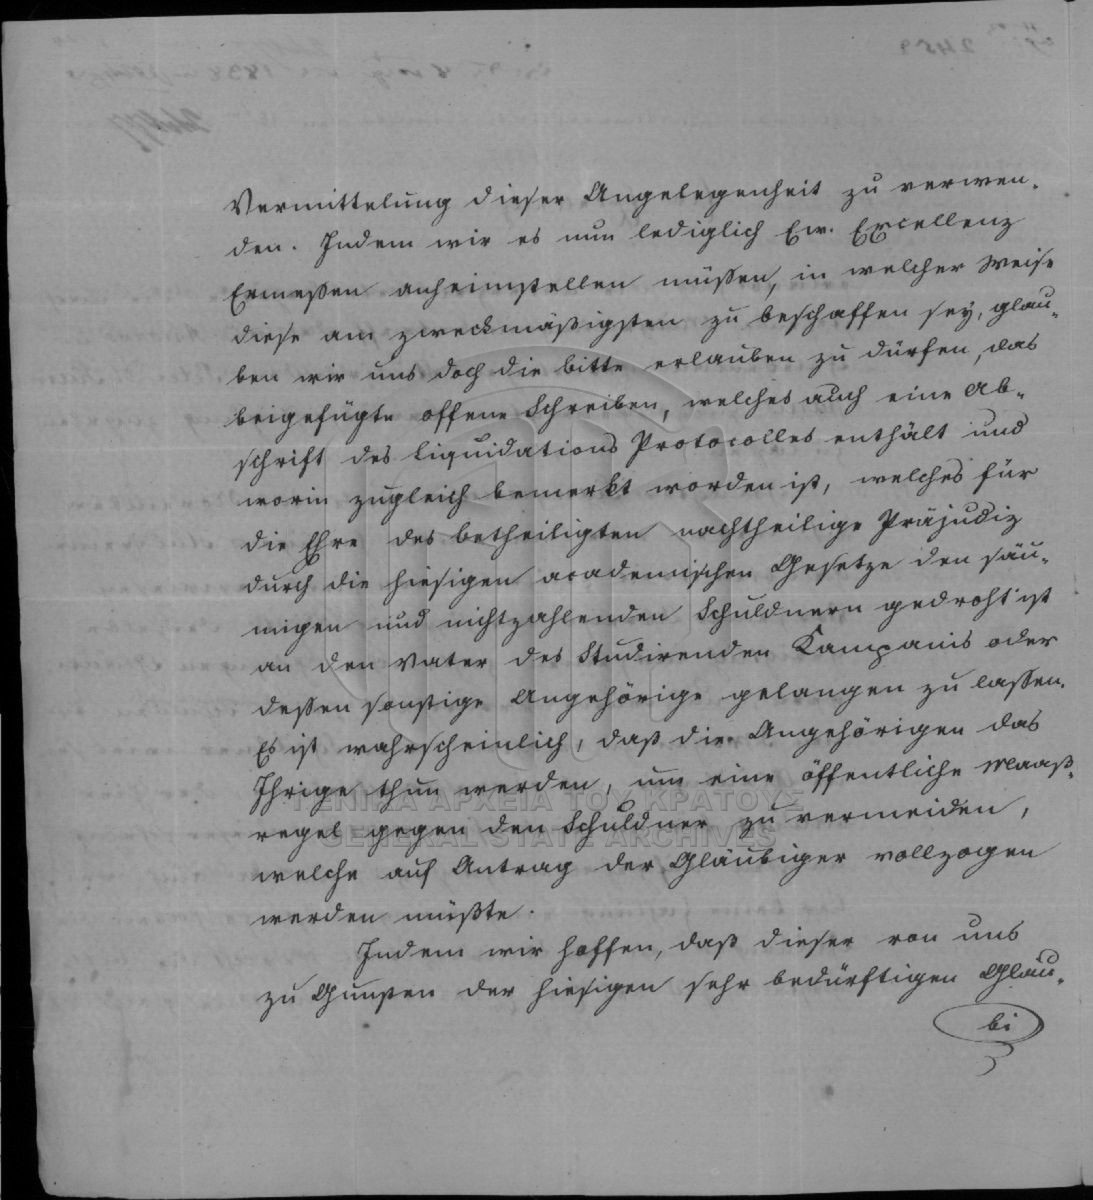 Vermittelung dieser Angelegenheit zu verwen-
den. Indem wir es nun lediglich Ew. Excellenz
Ermeßen anheimstellen müßen, in welcher Weise
diese am zweckmäßigsten zu beschaffen sey, glau-
ben wir uns doch die bitte erlauben zu dürfen, das
beigefügte offene Schreiben, welches auch eine Ab-
schrift des Liquidations Protocolles enthält und
worin zugleich bemerkt worden ist, welches für
die Ehre des betheiligten nachtheilige Präjudiz
durch die hiesigen academischen Gesetze den säu-
migen und nichtzahlenden Schuldnern gedroht ist
an den Vater des Studirenden Kampanis oder
deßen sonstige Angehörige gelangen zu laßen.
Es ist wahrscheinlich, daß die Angehörigen das
Ihrige thun werden, um eine öffentliche Maaß-
regel gegen den Schuldner zu vermeiden,
welche auf Antrag der Gläubiger vollzogen
werden müßte.
Indem wir hoffen, daß dieser von uns
zu Gunsten der hiesigen sehr bedürftigen Gläu-
bi
ΓΕΝΙΚΑ ΑΡΧΕΙΑ ΤΟΥ ΚΡΑΤΟΥΣ
GENERAL STATE ARCHIVES